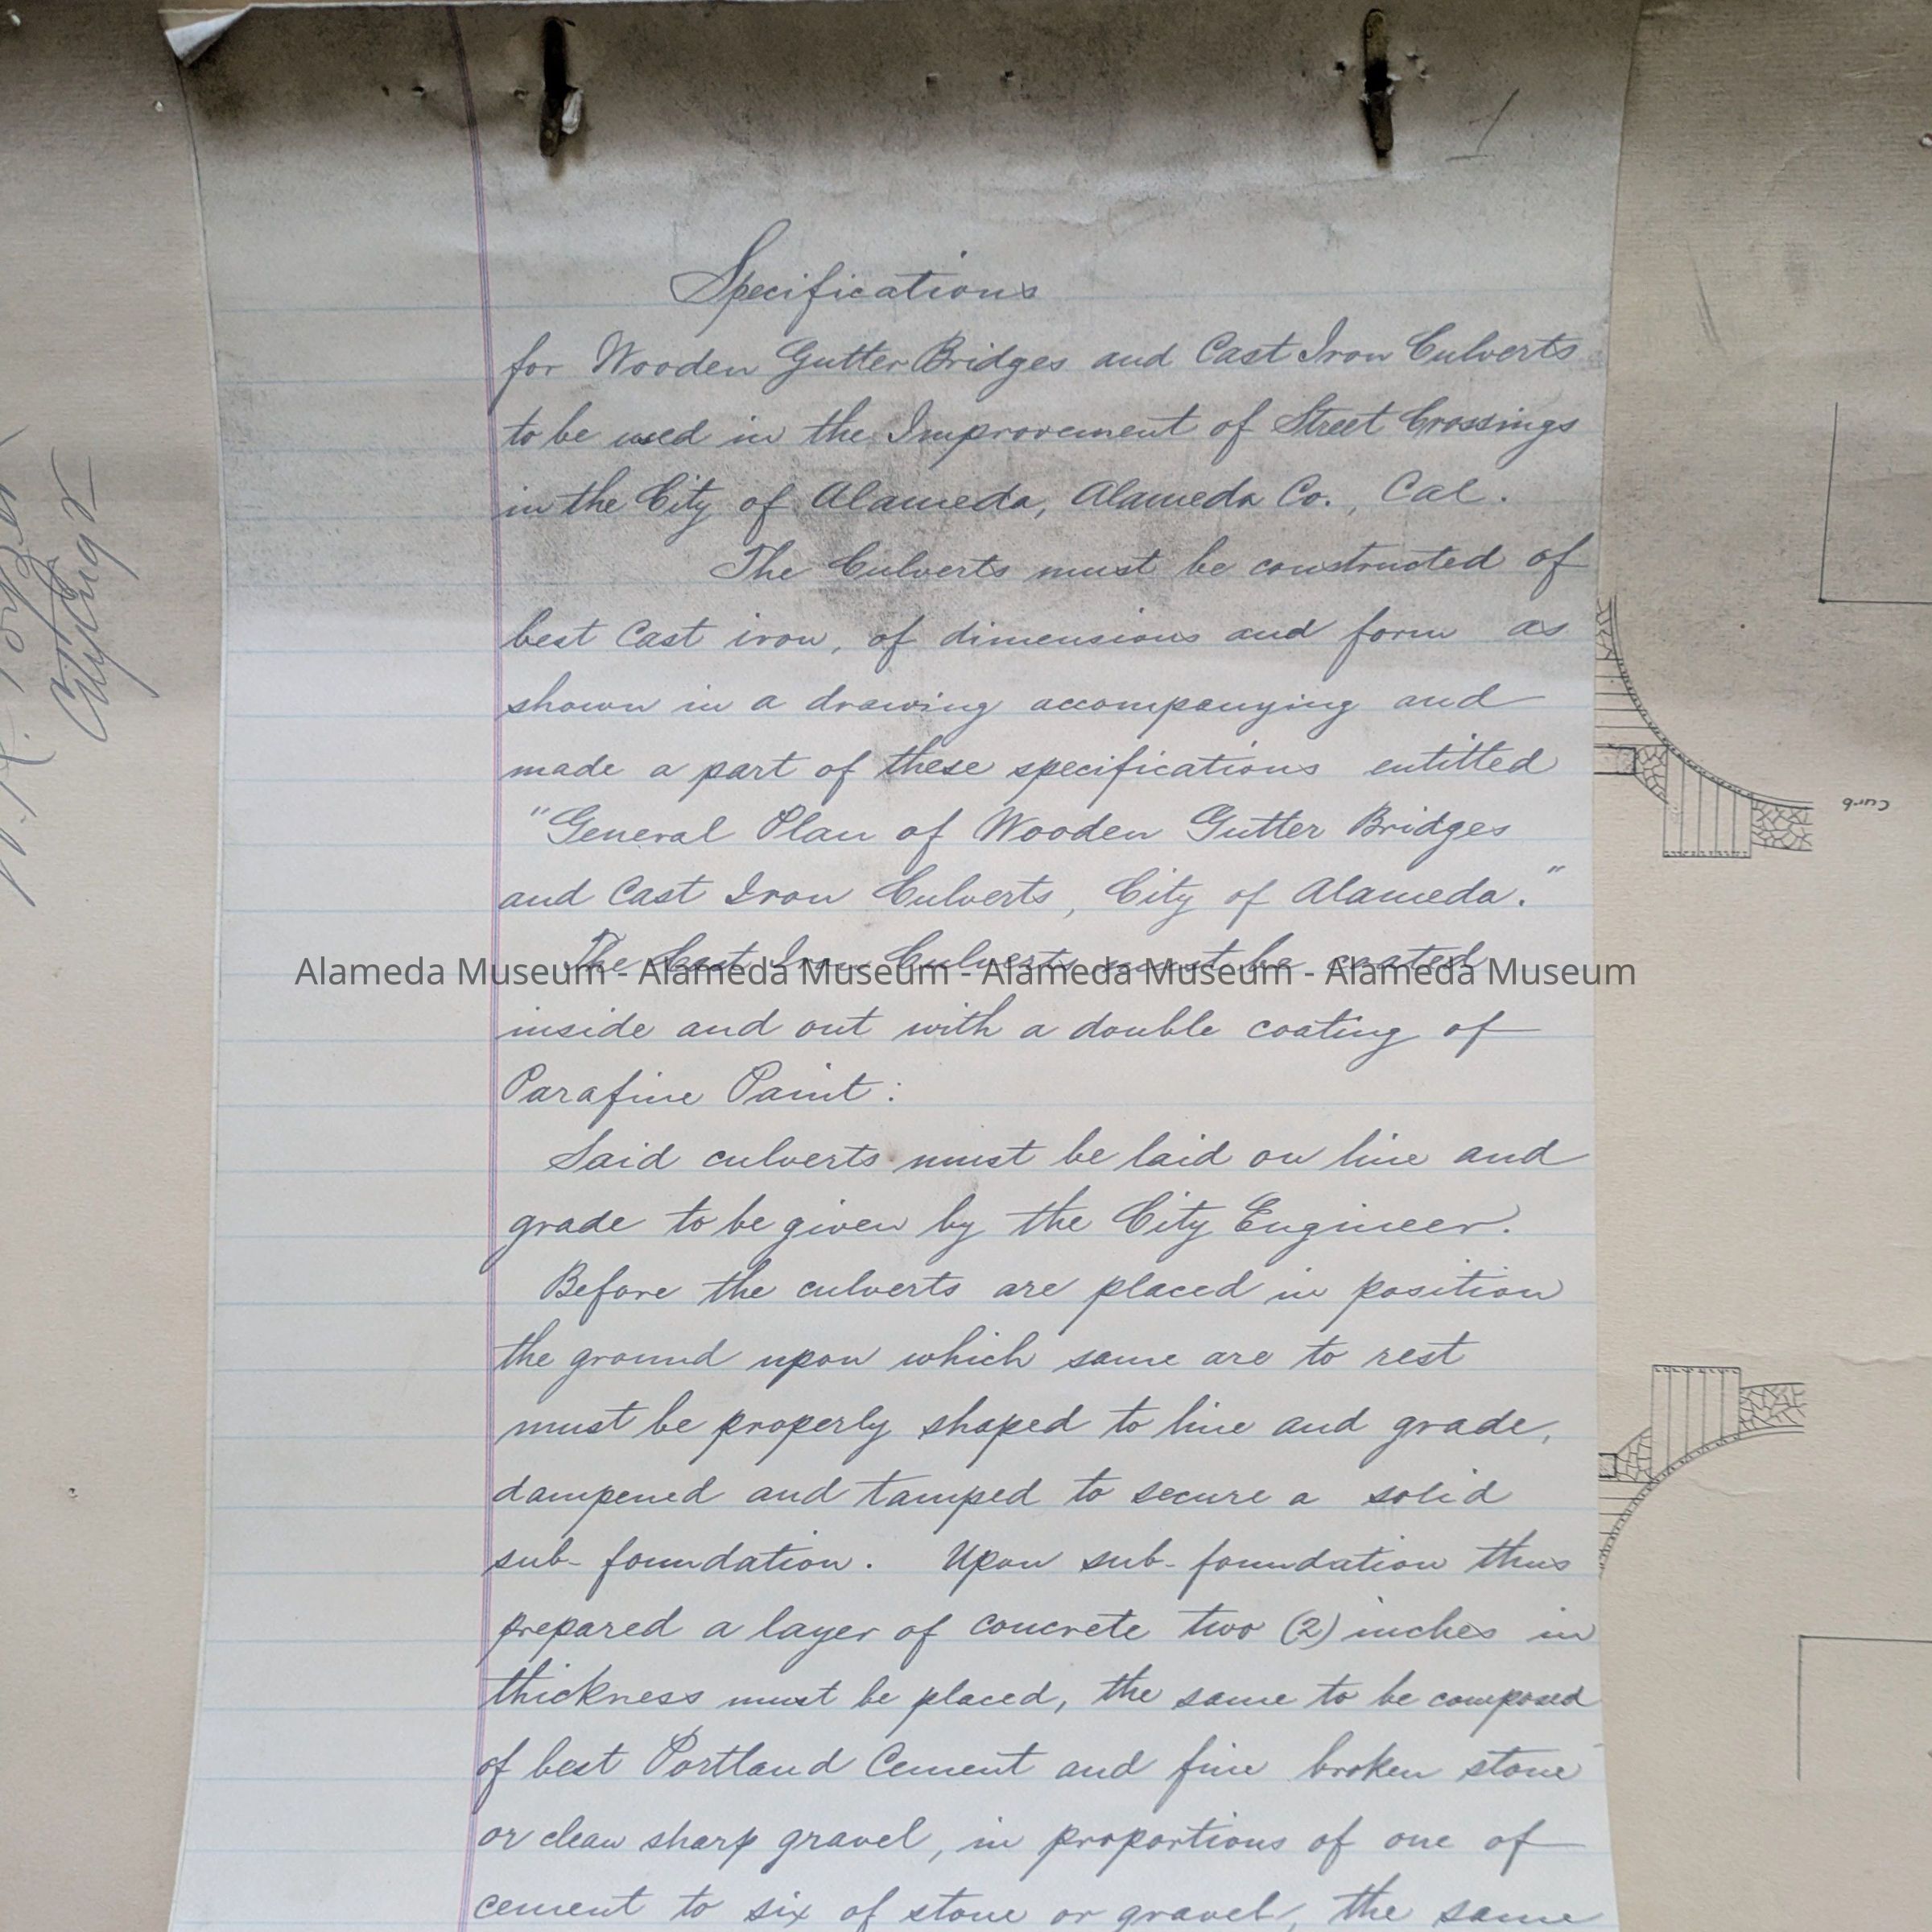 1
Specifications
for Wooden Gutter Bridges and Cast Iron Culverts
to be used in the Improvement of Street Crossings
in the City of Alameda, Alameda Co., Cal.
The Culverts must be constructed of
best Cast iron, of dimensions and form as
shown in a drawing accompanying and
made a part of these specifications entitled
"General Plan of Wooden Gutter Bridges
and Cast Iron Culverts, City of Alameda."
The Cast Iron Culverts must be coated
Alameda Museum - Alameda Museum - Alameda Museum - Alameda Museum
inside and out with a double coating of
Parafine Paint:
Said culverts must be laid on line and
grade to be given by the City Engineer.
Before the culverts are placed in position
the ground upon which same are to rest
must be properly shaped to line and grade,
dampened and tamped to secure a solid
sub-foundation. Upon sub-foundation thus
prepared a layer of concrete two (2) inches in
thickness must be placed, the same to be composed
of best Portland Cement and fine broken stone
or clean sharp gravel, in proportions of one of
cement to six of stone or gravel, the same
Curb
City Eng'r